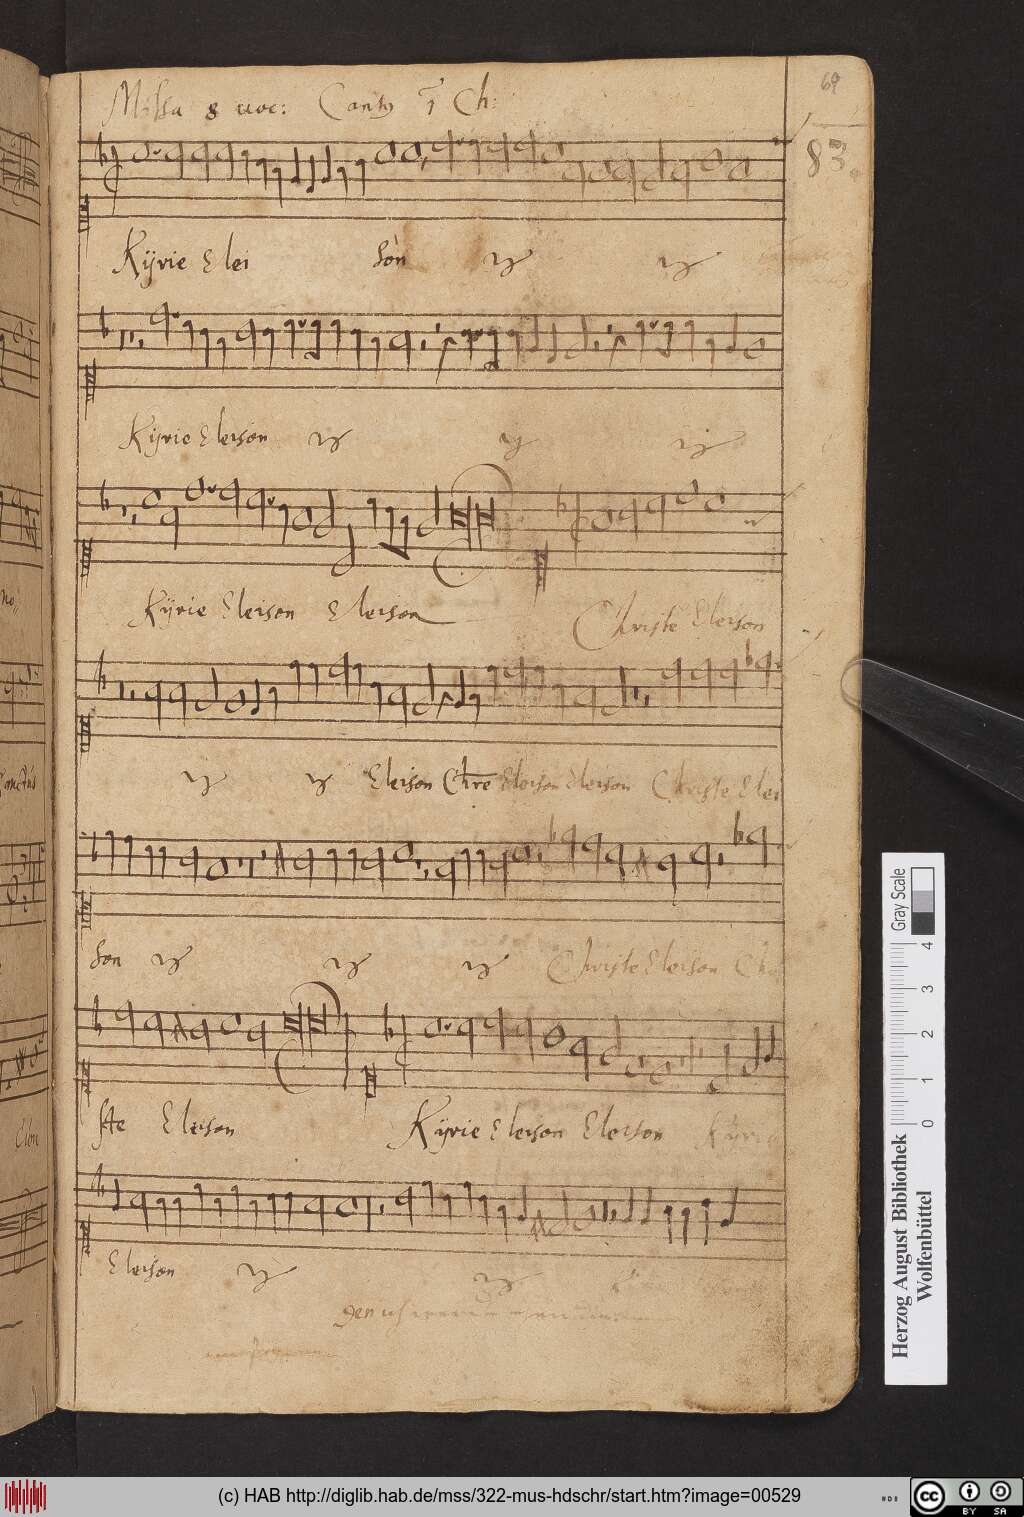 69
Missa 8 voc: Cantus 1 Ch:
83.
Kÿrie Elei son ij ij
Kÿrie Eleison ij ij ij
Kÿrie Eleison Eleison Christe Eleison
ij ij Eleison Chre Eleison Eleison Christe Elei
son ij ij ij Christe Eleison Chri
ste Eleison Kÿrie Eleison Eleison Kÿrie
Eleison ij ij
Sanctus
Gray Scale
4 3 2 1 0
Herzog August Bibliothek
Wolfenbüttel
(c) HAB http://diglib.hab.de/mss/322-mus-hdschr/start.htm?image=00529
cc BY SA